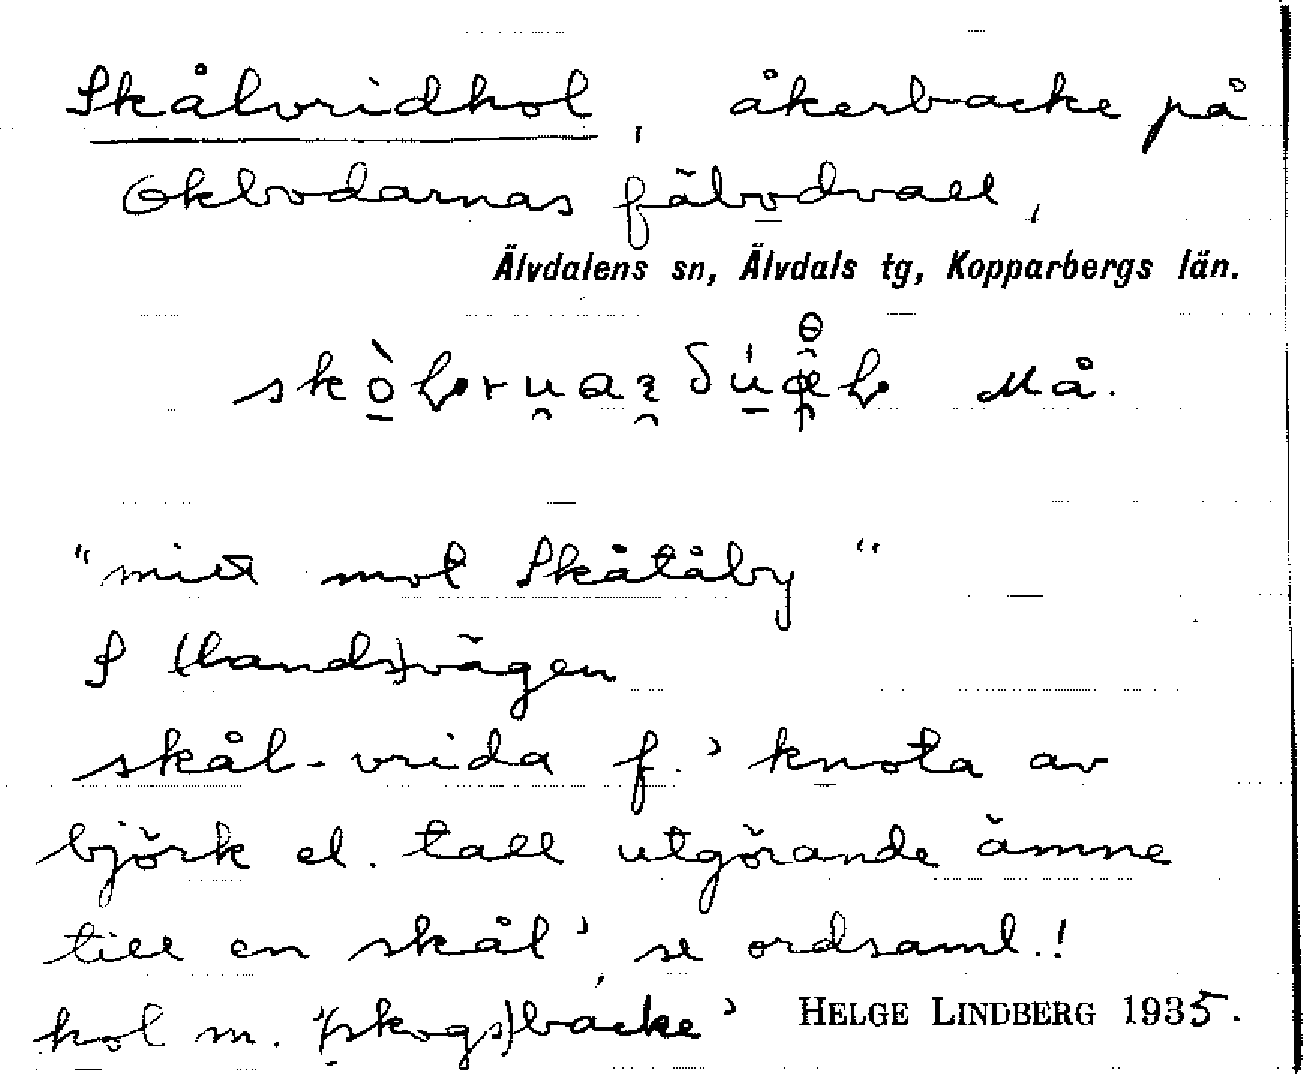 Skålvridhol, åkerbacke på
Okbodarnas fäbodvall,
Älvdalens sn, Älvdals tg, Kopparbergs län.
Må.
"mitt mot Skåtåby"
S (lands)vägen
skål-vrida f. 'knota av
björk el. tall utgörande ämne
till en skål', se ordsaml.!
hol m. '(skogs)backe' HELGE LINDBERG 1935.